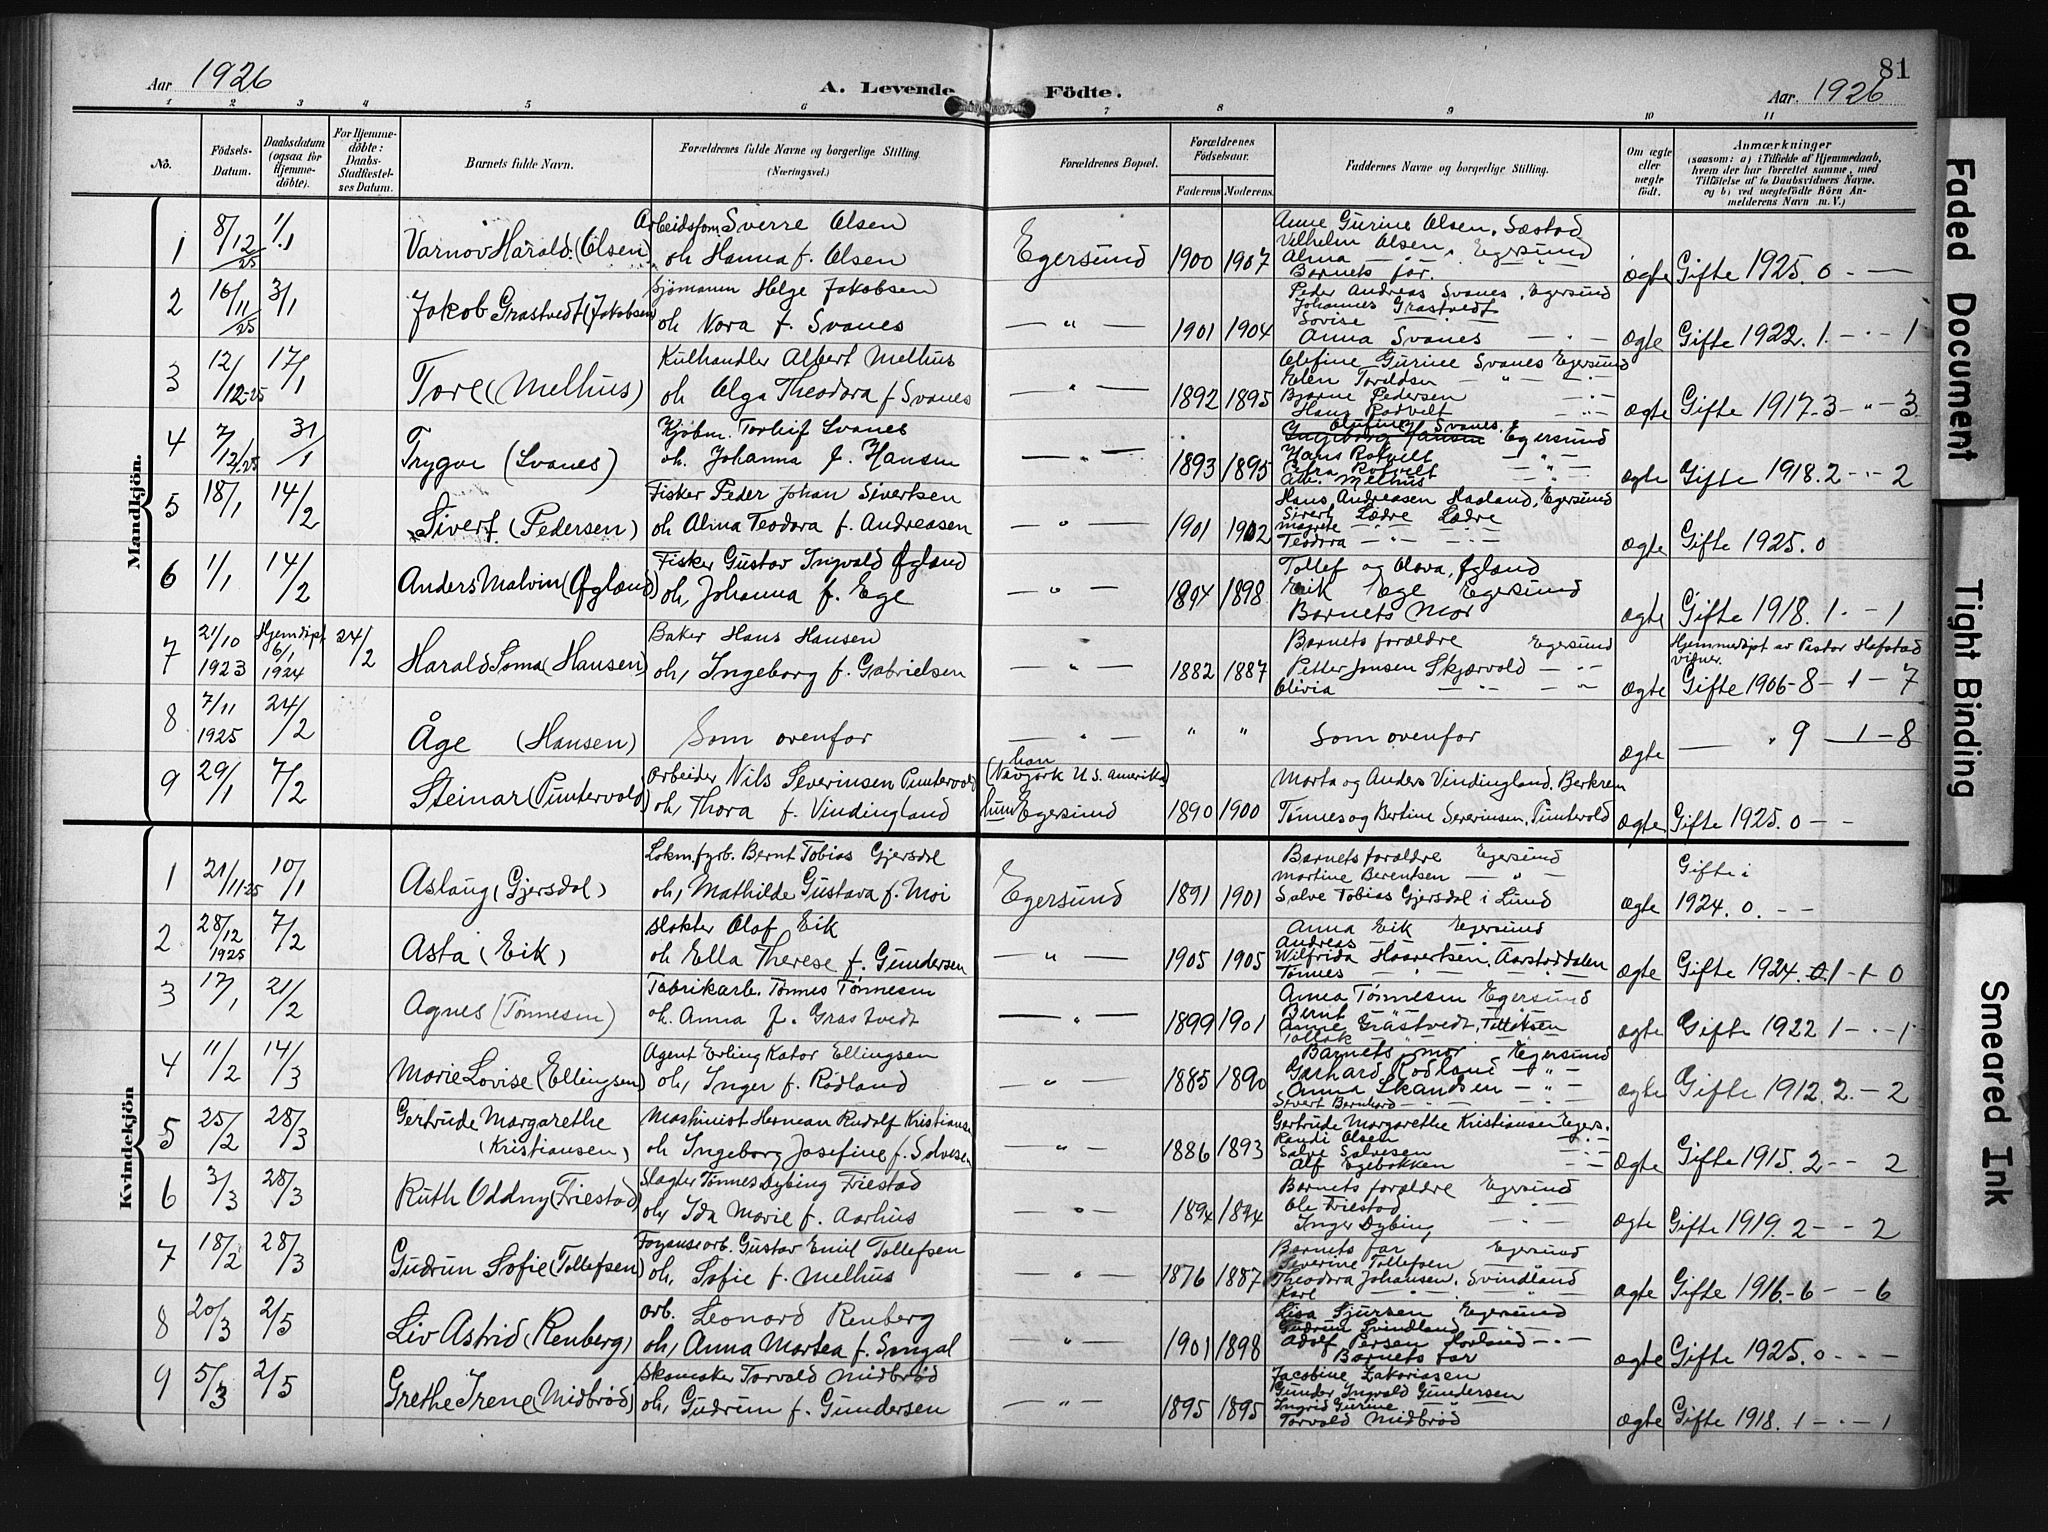 81
Aar 1926
A. Levende Födte.
Aar. 1926
1 2 3 4 5 6 7 8 9 10 11
No.
Födsels-Datum.
Daabsdatum (ogsaa for Hjemme-döbte).
For Hjemme-döbte: Daabs-Stadfæstel-ses Datum.
Barnets fulde Navn.
Forældrenes fulde Navne og borgerlige Stilling.
(Næringsvei.)
Forældrenes Bopæl.
Forældrenes Födselsaar.
Faderens Moderens
Faddernes Navne og borgerlige Stilling.
Om ægte eller uægte födt.
Anmærkninger
(saasom: a) i Tilfælde af Hjemmedaab,
hvem der har forrettet samme, med
Tilföielse af to Daabsvidners Navne,
og b) ved uægtefödte Börn An-
melderens Navn m. V.)
Mandkjön.
1 8/12/25 1/1 Varnov Harald (Olsen) Arbeidsfom. Sverre Olsen
oh Hanna f. Olsen
Egersund 1900 1907
Anne Gurine Olsen, Sæstad
Vilhelm Olsen, Egersund
Alma — " —
Barnets far.
ægte Gifte 1925. 0 - —
2 16/11/25 3/1 Jakob Grastvedt (Jakobsen) Sjømann Helge Jakobsen
oh Nora f. Svanes
— " — 1901 1904
Peder Andreas Svanes, Egersund
Johannes Grastvedt
Lovise
Anna Svanes — " —
ægte Gifte 1922. 1. - - 1
3 12/12-25 17/1 Tore (Melhus) Kulhandler Albert Melhus
oh Olga Theodora f Svanes
— " — 1892 1895
Olefine Gurine Svanes Egersund
Elen Toreldsen — " —
Bjarne Pedersen
Hans Rotvilt
ægte Gifte 1917-3 - " - 3
4 7/12.25 31/1 Trygve (Svanes) Kjøbm. Torleif Svanes
oh. Johanna f. Hansen
— " — 1893 1895
Olufine Svanes.
Ingeborg Hansen Egersund
Hans Rotvilt — " —
Alb. Melhus
ægte Gifte 1918. 2 - - 2
5 18/1 14/2 Sivert (Pedersen) Fisker Peder Johan Sivertsen
oh Alma Teodora f. Andreasen
— " — 1901 1902
Hans Andreasen Haaland, Egersund
Sivert Lædre Lædre
Magrete — " —
Teodora — " —
ægte Gifte 1925. 0
6 1/1 14/2 Anders Malvin (Øgland) Fisker Gustav Ingvald Øgland
oh, Johanna f. Ege
— " — 1894 1898
Tollef og Olava, Øgland
Eik Ege Egersund
Barnets Mor
ægte Gifte 1918. 1. - 1
7 21/10 1923 Hjemdøpt 6/1 1924 24/2 Harald Soma (Hansen) Baker Hans Hansen
oh, Ingeborg f. Gabrielsen
— " — 1882 1887
Barnets forældre Egersund
Petter Jonsen Skjærvold — " —
Olivia — " —
ægte Hjemmedøpt av Pastor Hofstad
Gifte 1906-8 - 1 - 7
8 7/11 1925 24/2 Åge (Hansen) Som ovenfor
— " — " " Som ovenfor ægte — " 9 — 1 - 8
9 29/1 7/2 Steinar (Puntervold) Arbeider Nils Severinsen Puntervold
oh, Thora f. Vindingland
han (Navyork U.S. Amerika)
hun Egersund 1890 1900
Marta og Anders Vindingland. Berkrem
Tønnes og Bertine Severinsen, Puntervold
ægte Gifte 1925. 0 - -
Kvindekjön
1 21/11.25 10/1 Aslaug (Gjersdal) Lokm.fyrb. Bernt Tobias Gjersdal
oh, Mathilde Gustava f. Moi
Egersund 1891 1901
Barnets forældre Egersund
Martine Berentsen — " —
Salve Tobias Gjersdal i Lund
ægte Gifte i
1924. 0. - -
2 28/12 1925 7/2 Asta (Eik) Slakter Olaf Eik
oh Ella Therese f. Gundersen
— " — 1905 1905
Anna Eik Egersund
Andreas —
Wilfrida Haavertsen, Aarstaddalen
Tønnes — " —
ægte Gifte 1924. 0 1 - 1 0
3 17/1 21/2 Agnes (Tønnesen) Fabrikarb. Tønnes Tønnesen
oh. Anna f. Grastvedt
— " — 1899 1901
Anna Tønnesen Egersund
Bernt "
Anne Grastvedt, Tellefsen
Tollak — " —
ægte Gifte 1922 1 - - 1
4 11/2 14/3 Marie Lovise (Ellingsen) Agent Erling Kator Ellingsen
oh, Inger f. Rødland
— " — 1885 1890
Barnets mor Egersund
Gerhard Rødland — " —
Anna Skandsen — " —
Sivert Bernhard — " —
ægte Gifte 1912. 2. - 2
5 25/2 28/3 Gertrude Margarethe
(Kristiansen)
Maskinist Herman Rudolf Kristiansen
oh Ingeborg Josefine f. Salvesen
— " — 1886 1893
Gertrude Margarethe Kristiansen Egers.
Randi Olsen — " —
Salve Salvesen
Alf Egebakken — " —
ægte Gifte 1915. 2 - - 2
6 3/3 28/3 Ruth Oddny (Friestad) Slagter Tønnes Dybing Friestad
oh, Ida Marie f. Aarhus
— " — 1894 1894
Barnets forældre Egersund
Ole Friestad — " —
Inger Dybing — " —
ægte Gifte 1919. 2 - - 2
7 18/2 28/3 Gudrun Sofie (Tollefsen) Fayansearb. Gustav Emil Tollefsen
oh, Sofie f. Melhus
— " — 1876 1887
Barnets far Egersund
Severine Tollefsen — " —
Theodora Johansen, Svindland
Karl — " —
ægte Gifte 1916. - 6 - - 6
8 20/3 2/5 Liv Astrid (Renberg) Arb. Leonard Renberg
oh, Anna Martea f. Sengal
— " — 1901 1898
Lisa Sjursen Egersund
Gudrun Svindland — " —
Adolf Persen Hovland — " —
Barnets far
ægte Gifte 1925. 0 - - -
9 5/3 2/5 Grethe Irene (Midbrød) Skomaker Torvald Midbrød
oh, Gudrun f. Gundersen
— " — 1895 1895
Jacobine Zakariasen
Gunder Ingvald Gundersen
Ingrid Gurine — " —
Torvald Midbrød
ægte Gifte 1918. 1 - - - 1
Faded Document
Tight Binding
Smeared Ink